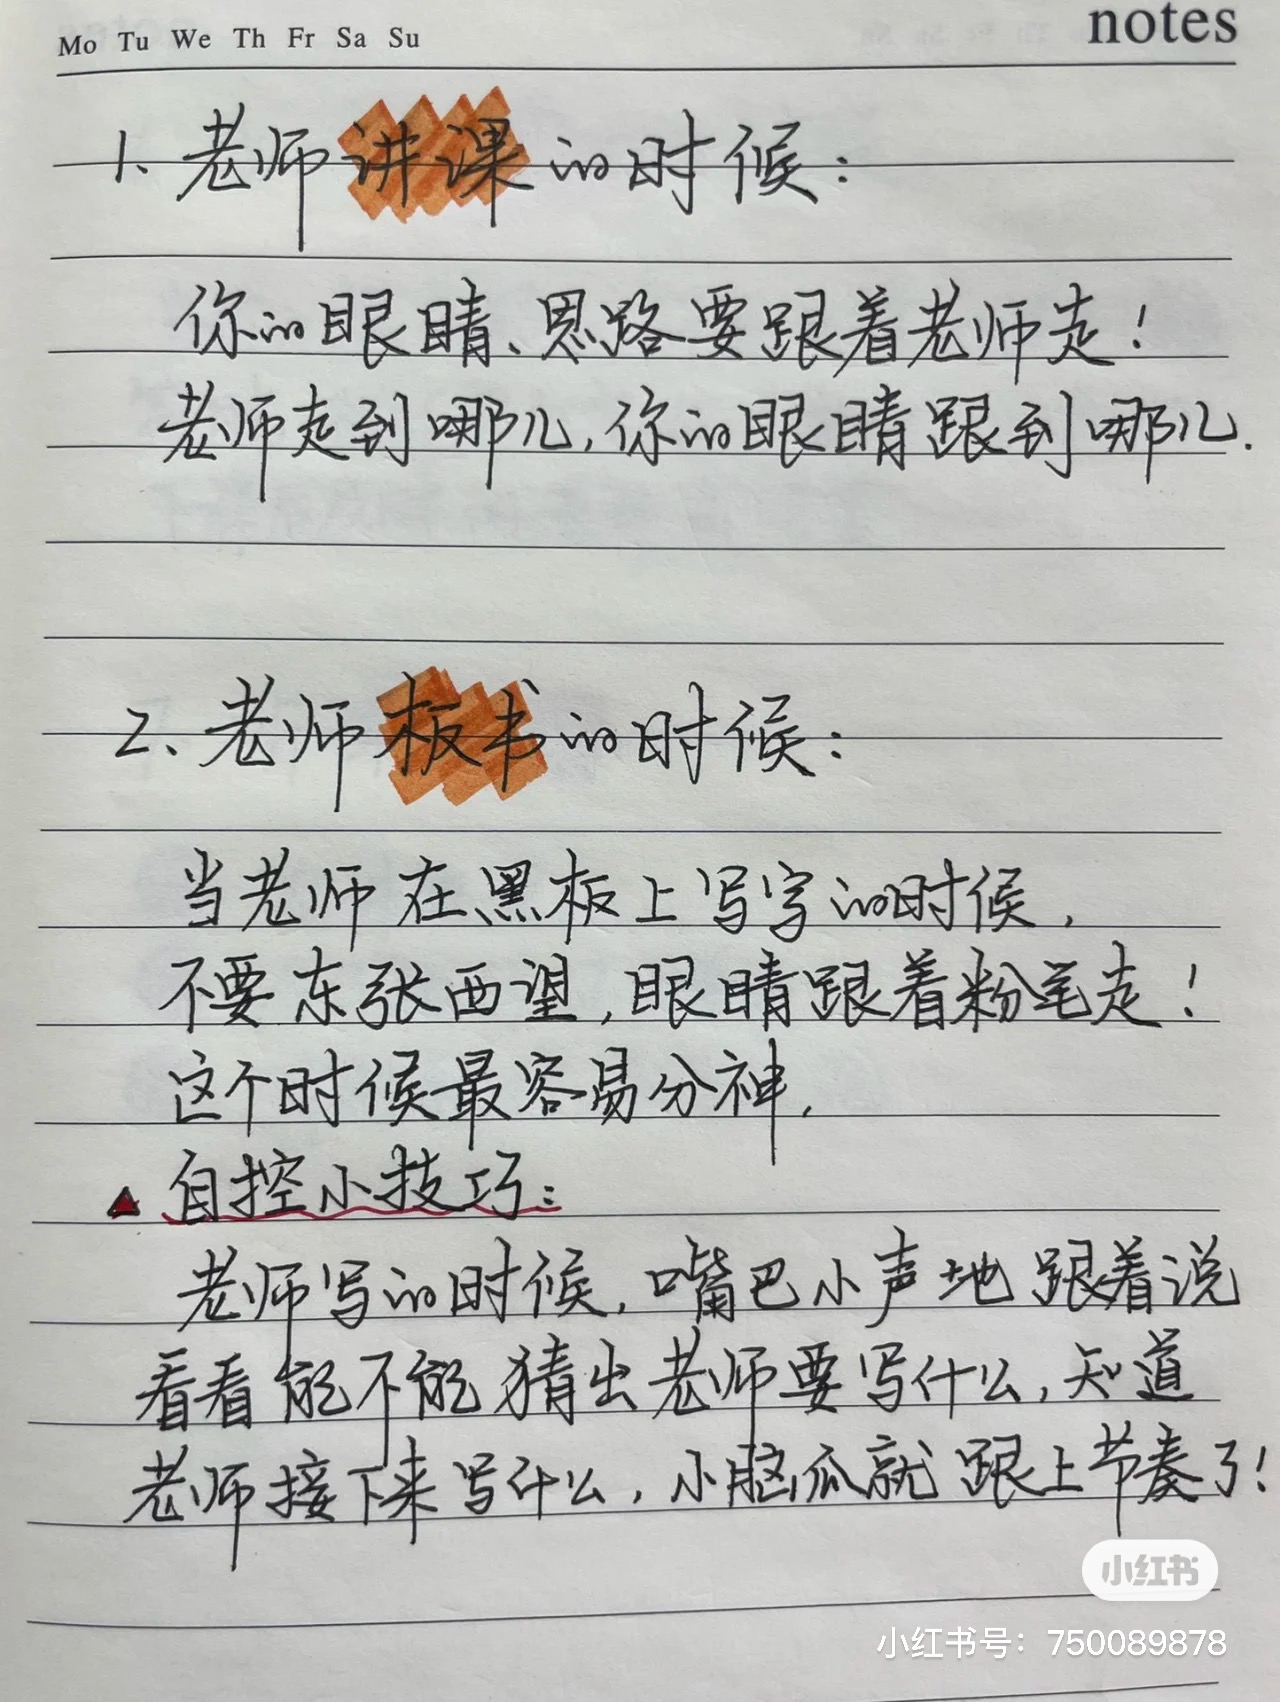 Mo Tu We Th Fr Sa Su
notes
1、老师讲课的时候：
你的眼睛、思路要跟着老师走！
老师走到哪儿，你的眼睛跟到哪儿.
2、老师板书的时候：
当老师在黑板上写字的时候，
不要东张西望，眼睛跟着粉笔走！
这个时候最容易分神，
▲自控小技巧：
老师写的时候，嘴巴小声地跟着说
看看能不能猜出老师要写什么，知道
老师接下来写什么，小脑瓜就跟上节奏了！
小红书
小红书号：750089878